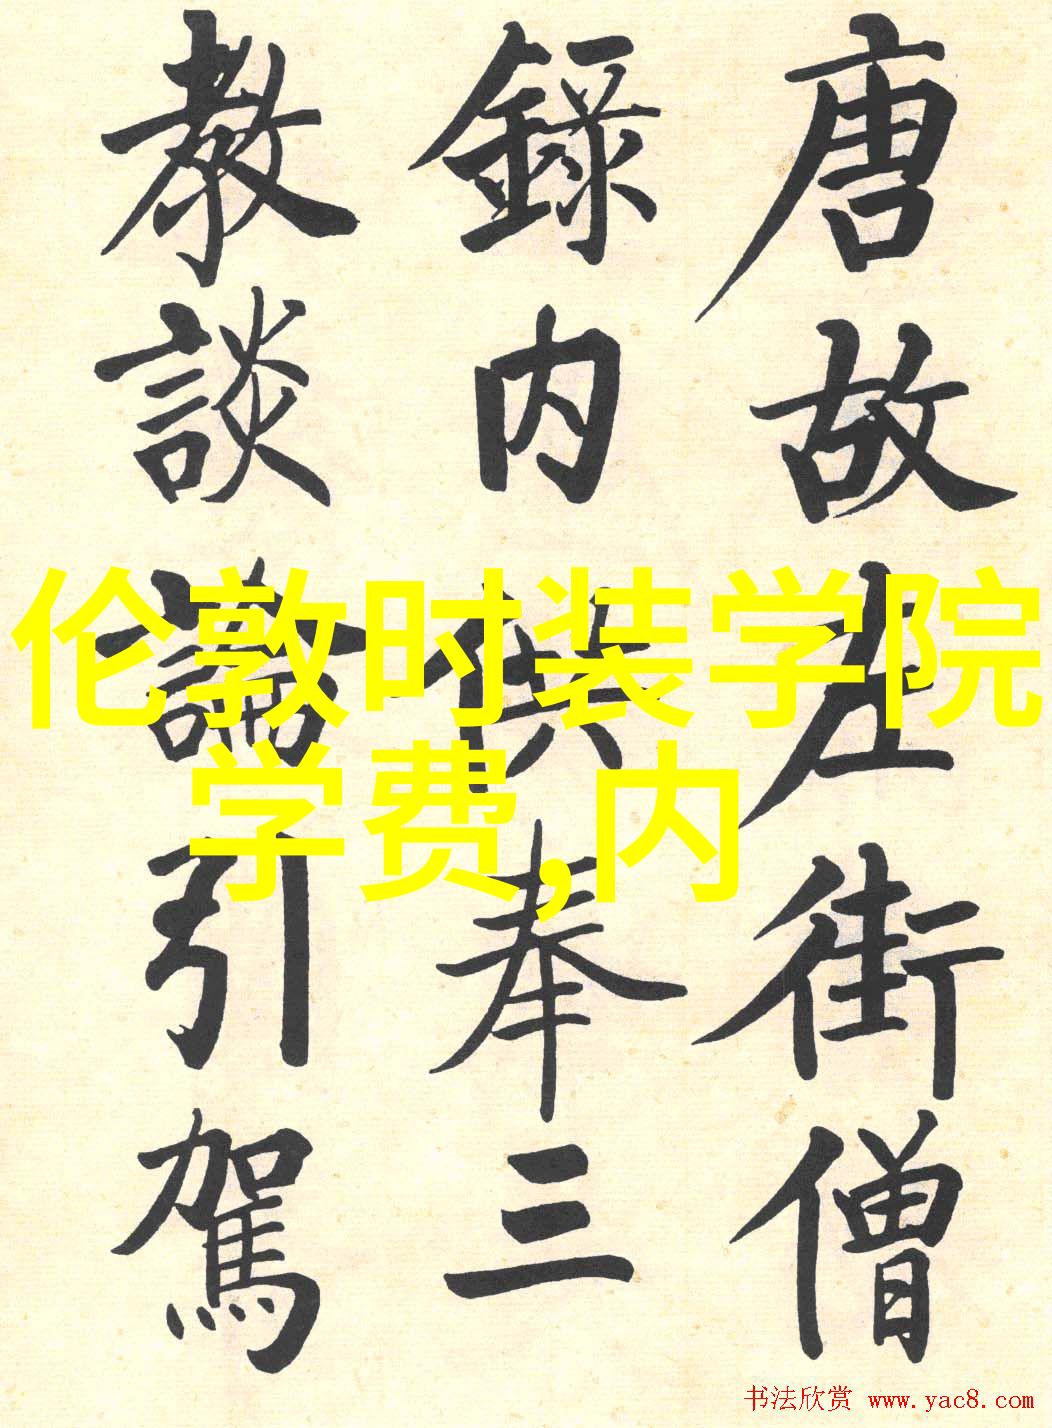 唐故左街僧
錄内供奉三
教談論引駕
伦敦时装学院
学费,内
书法欣赏 www.yac8.com